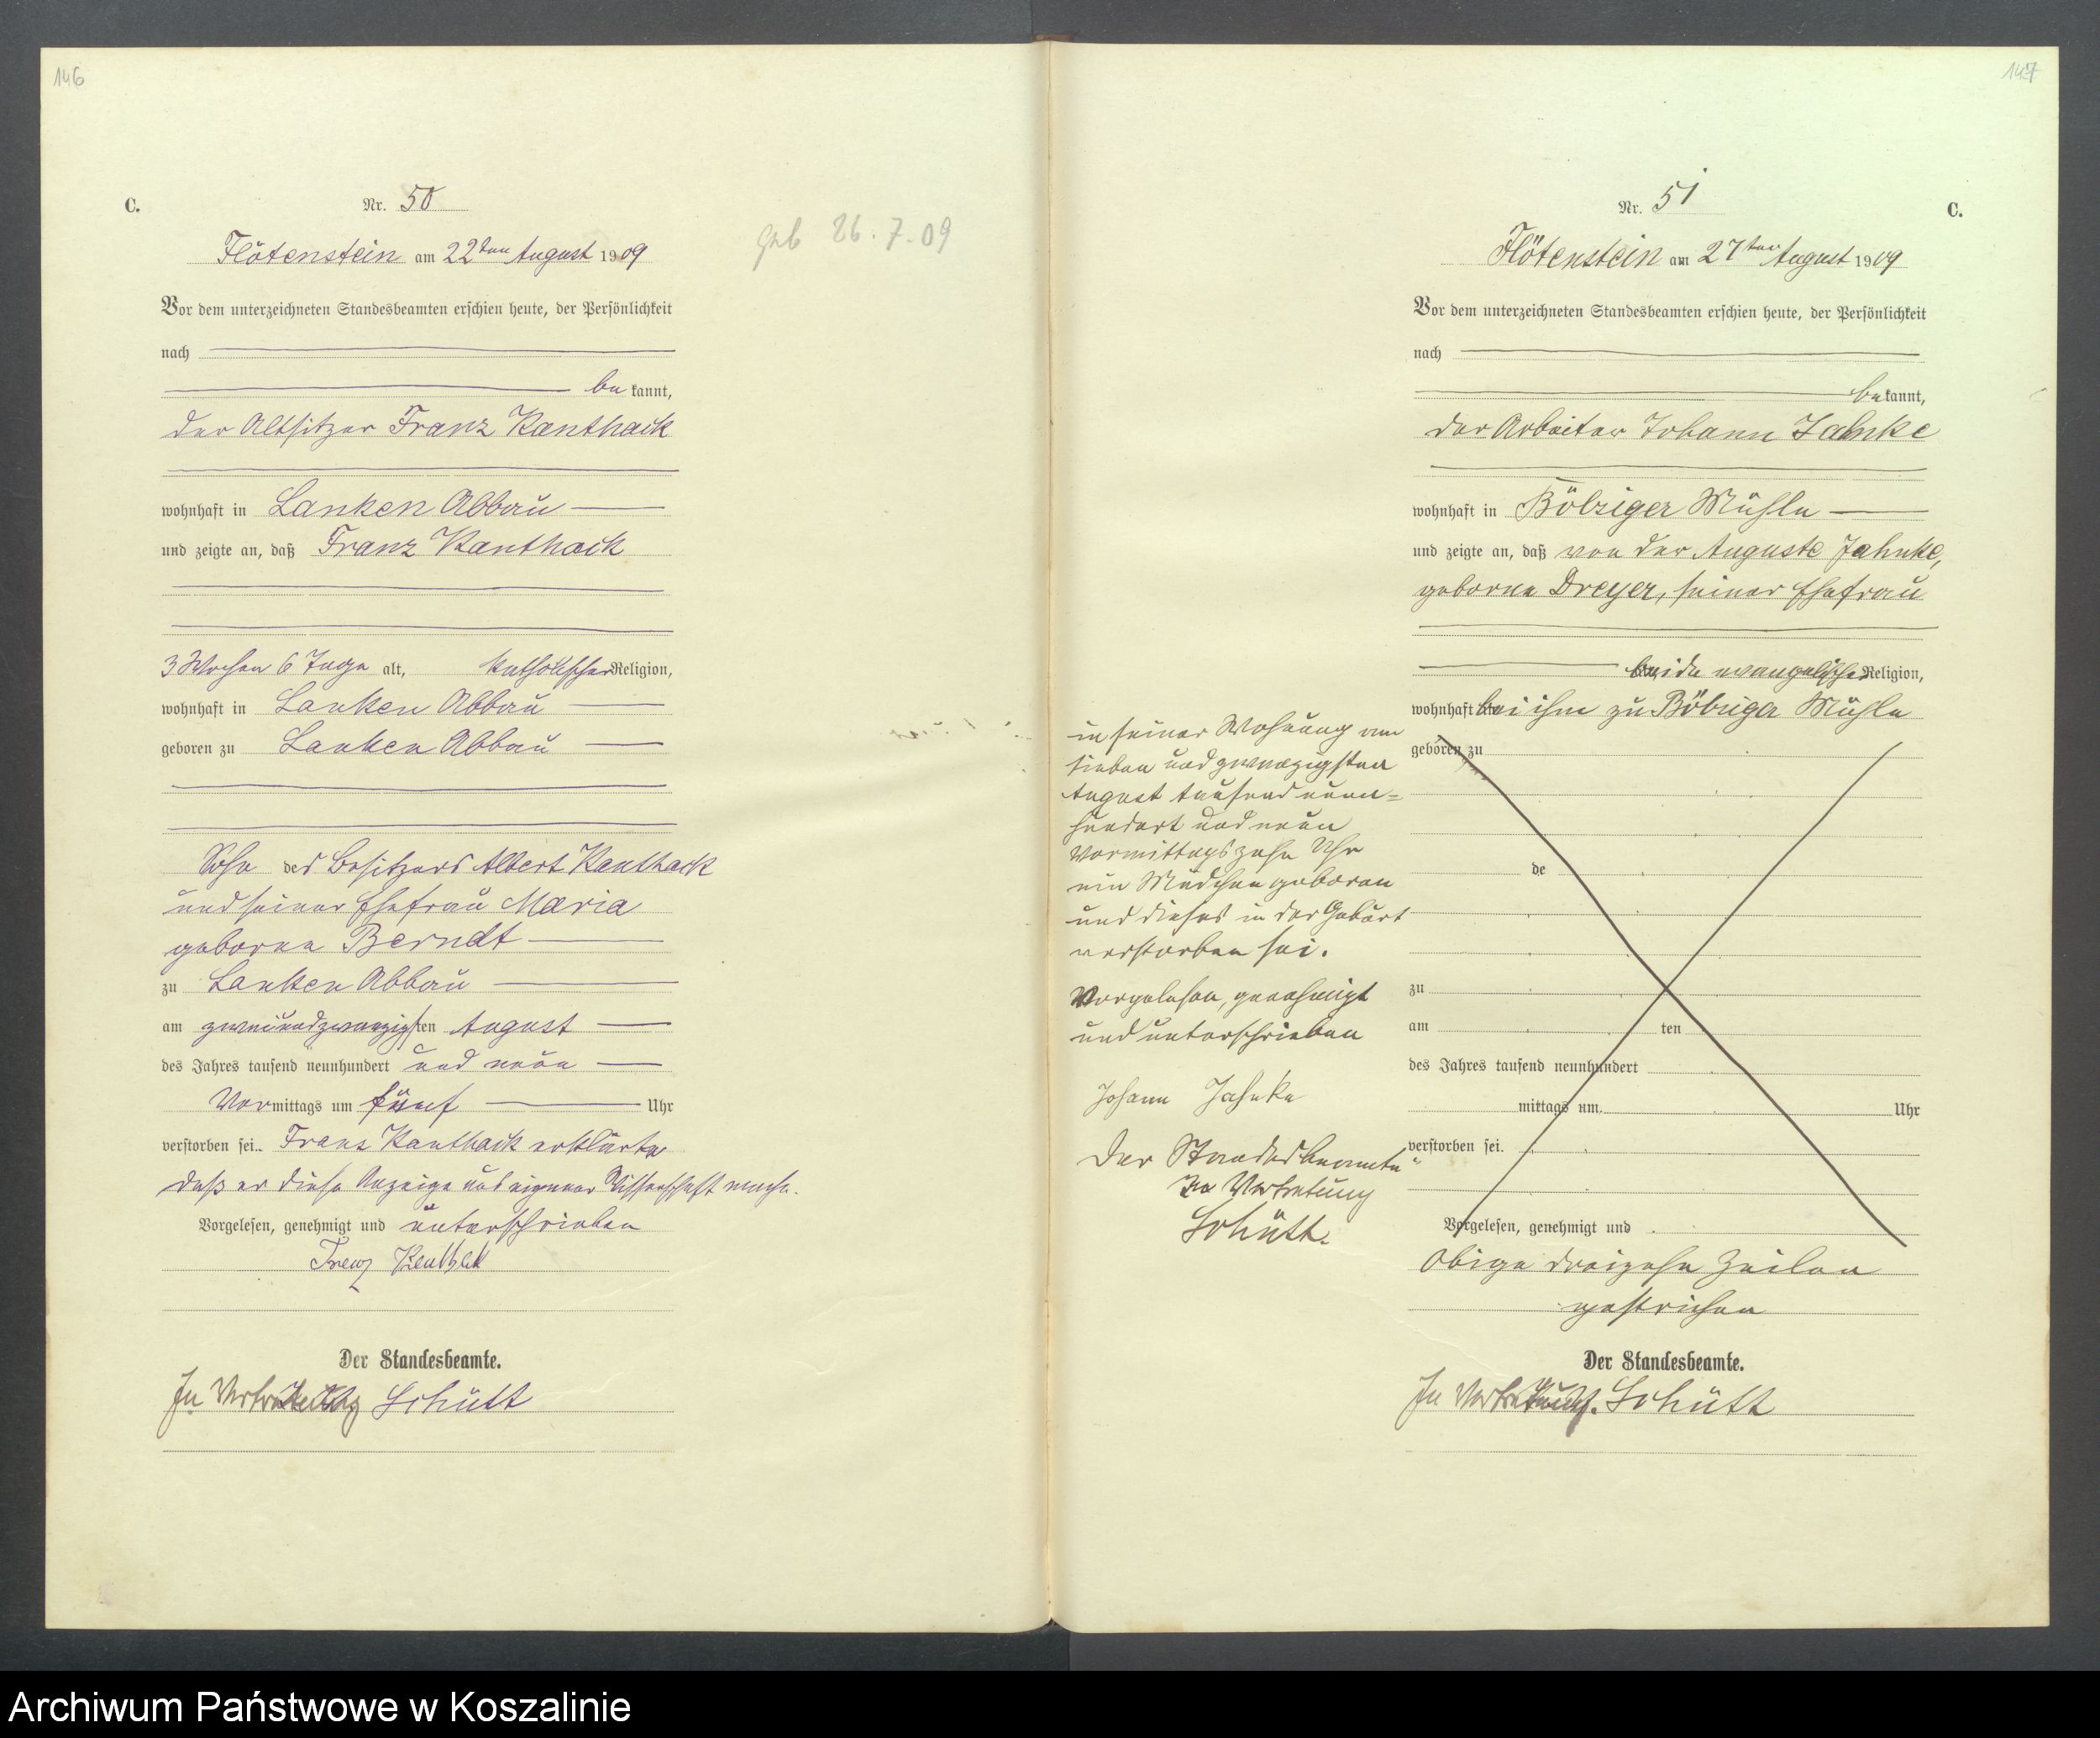 146
C.
Nr. 50
Flötenstein am 22ten August 1909
geb 26.7.09
Vor dem unterzeichneten Standesbeamten erschien heute, der Persönlichkeit
nach
bekannt,
der Altsitzer Franz Kanthack
wohnhaft in Lanken Abbau
und zeigte an, daß Franz Kanthack
3 Wochen 6 Tage alt, katholischer Religion,
wohnhaft in Lanken Abbau
geboren zu Lanken Abbau
Sohn des Besitzers Albert Kanthack
und seiner Ehefrau Maria
geborene Berndt
zu Lanken Abbau
am zweiundzwanzigsten August
des Jahres tausend neunhundert und neun
Vormittags um fünf Uhr
verstorben sei. Franz Kanthack erklärte
daß er diese Anzeige aus eigener Wissenschaft mache.
Vorgelesen, genehmigt und unterschrieben
Franz Kanthack
Der Standesbeamte.
In Vertretung Schütt
147
Nr. 51
C.
Flötenstein am 27ten August 1909
Vor dem unterzeichneten Standesbeamten erschien heute, der Persönlichkeit
nach
bekannt,
der Arbeiter Johann Jahnke
wohnhaft in Böbziger Mühle
und zeigte an, daß von der Auguste Jahnke,
geborene Dreyer, seiner Ehefrau
beide evangelischer Religion,
wohnhaft bei ihm zu Böbziger Mühle
in seiner Wohnung am
sieben und zwanzigsten
August tausend neun=
hundert und neun
Vormittags zehn Uhr
ein Mädchen geboren
und dieses in der Geburt
verstorben sei.
Vorgelesen, genehmigt
und unterschrieben
Johann Jahnke
Der Standesbeamte
In Vertretung
Schütt.
geboren zu
de
zu
am ten
des Jahres tausend neunhundert
mittags um Uhr
verstorben sei.
Vorgelesen, genehmigt und
Obige dreizehn Zeilen
gestrichen
Der Standesbeamte.
In Vertretung. Schütt
Archiwum Państwowe w Koszalinie